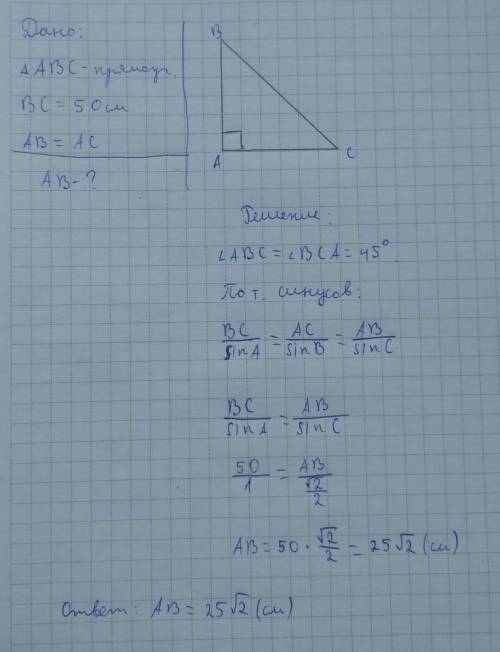 Дано:
△ABC - прямоуг.
BC = 50 см
AB = AC
AB - ?
B
A
C
Решение:
∠ABC = ∠BCA = 45°.
По т. синусов:
BC/sin A = AC/sin B = AB/sin C
BC/sin A = AB/sin C
50/1 = AB/(√2/2)
AB = 50 · √2/2 = 25√2 (см)
Ответ: AB = 25√2 (см)